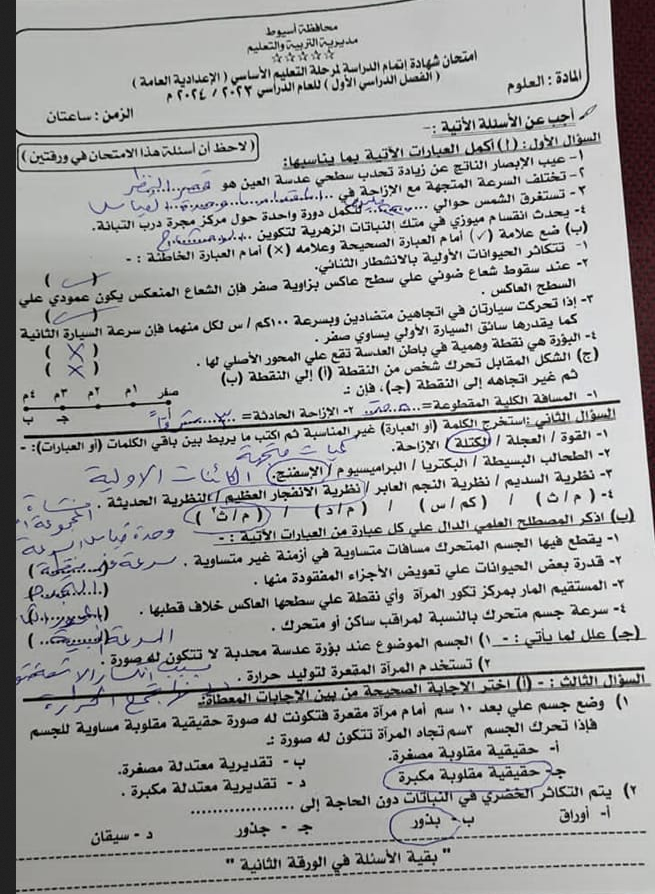 محافظة أسيوط
مديرية التربية والتعليم
☆☆☆☆☆
امتحان شهادة إتمام الدراسة لمرحلة التعليم الأساسي ( الإعدادية العامة )
( الفصل الدراسي الأول ) للعام الدراسي ٢٠٢٣ / ٢٠٢٤ م
المادة : العلوم
الزمن : ساعتان
أجب عن الأسئلة الأتية :-
( لاحظ أن أسئلة هذا الامتحان في ورقتين )
السؤال الأول : ( أ ) أكمل العبارات الأتية بما يناسبها :
١- عيب الإبصار الناتج عن زيادة تحدب سطحي عدسة العين هو قصر النظر
٢- تختلف السرعة المتجهة مع الإزاحة في ............
٣- تستغرق الشمس حوالي ............ لتكمل دورة واحدة حول مركز مجرة درب التبانة.
٤- يحدث انقسام ميوزي في متك النباتات الزهرية لتكوين ............
(ب) ضع علامة (✓) أمام العبارة الصحيحة وعلامه (×) أمام العبارة الخاطئة : -
١- تتكاثر الحيوانات الأولية بالانشطار الثنائي. ( )
٢- عند سقوط شعاع ضوئي علي سطح عاكس بزاوية صفر فإن الشعاع المنعكس يكون عمودي علي
السطح العاكس . ( )
٣- إذا تحركت سيارتان في اتجاهين متضادين وبسرعة ١٠٠كم / س لكل منهما فإن سرعة السيارة الثانية
كما يقدرها سائق السيارة الأولي يساوي صفر . ( × )
٤- البؤرة هي نقطة وهمية في باطن العدسة تقع علي المحور الأصلي لها . ( × )
(ج) الشكل المقابل تحرك شخص من النقطة (أ) إلي النقطة (ب)
ثم غير اتجاهه إلي النقطة (ج)، فإن :-
صفر ١م ٢م ٣م ٤م
أ جـ ب
١- المسافة الكلية المقطوعة= ............ ٢- الإزاحة الحادثة= ............
السؤال الثاني : استخرج الكلمة (أو العبارة) غير المناسبة ثم اكتب ما يربط بين باقي الكلمات (أو العبارات): -
١- القوة / العجلة / الكتلة / الإزاحة. كميات متجهة
٢- الطحالب البسيطة / البكتريا / البراميسيوم / الإسفنج. الكائنات الاولية
٣- نظرية السديم / نظرية النجم العابر / نظرية الانفجار العظيم / النظرية الحديثة .
٤- ( م / ث ) / ( كم / س ) / ( م / د ) / ( م / ث٢ ) وحدة قياس السرعة
(ب) اذكر المصطلح العلمي الدال علي كل عبارة من العبارات الأتية : -
١- يقطع فيها الجسم المتحرك مسافات متساوية في أزمنة غير متساوية . سرعة غير منتظمة
٢- قدرة بعض الحيوانات علي تعويض الأجزاء المفقودة منها . ( التجدد )
٣- المستقيم المار بمركز تكور المرآة وأي نقطة علي سطحها العاكس خلاف قطبها .
٤- سرعة جسم متحرك بالنسبة لمراقب ساكن أو متحرك . السرعة النسبية
(جـ) علل لما يأتي : - ١) الجسم الموضوع عند بؤرة عدسة محدبة لا تتكون له صورة .
٢) تستخدم المرآة المقعرة لتوليد حرارة .
السؤال الثالث : - (أ) اختر الإجابة الصحيحة من بين الإجابات المعطاة:-
١) وضع جسم علي بعد ١٠ سم أمام مرآة مقعرة فتكونت له صورة حقيقية مقلوبة مساوية للجسم
فإذا تحرك الجسم ٣سم تجاه المرآة تتكون له صورة :-
أ- حقيقية مقلوبة مصغرة. ب - تقديرية معتدلة مصغرة.
جـ- حقيقية مقلوبة مكبرة د - تقديرية معتدلة مكبرة .
٢) يتم التكاثر الخضري في النباتات دون الحاجة إلى ..................
أ- أوراق ب- بذور جـ - جذور د - سيقان
" بقية الأسئلة في الورقة الثانية "